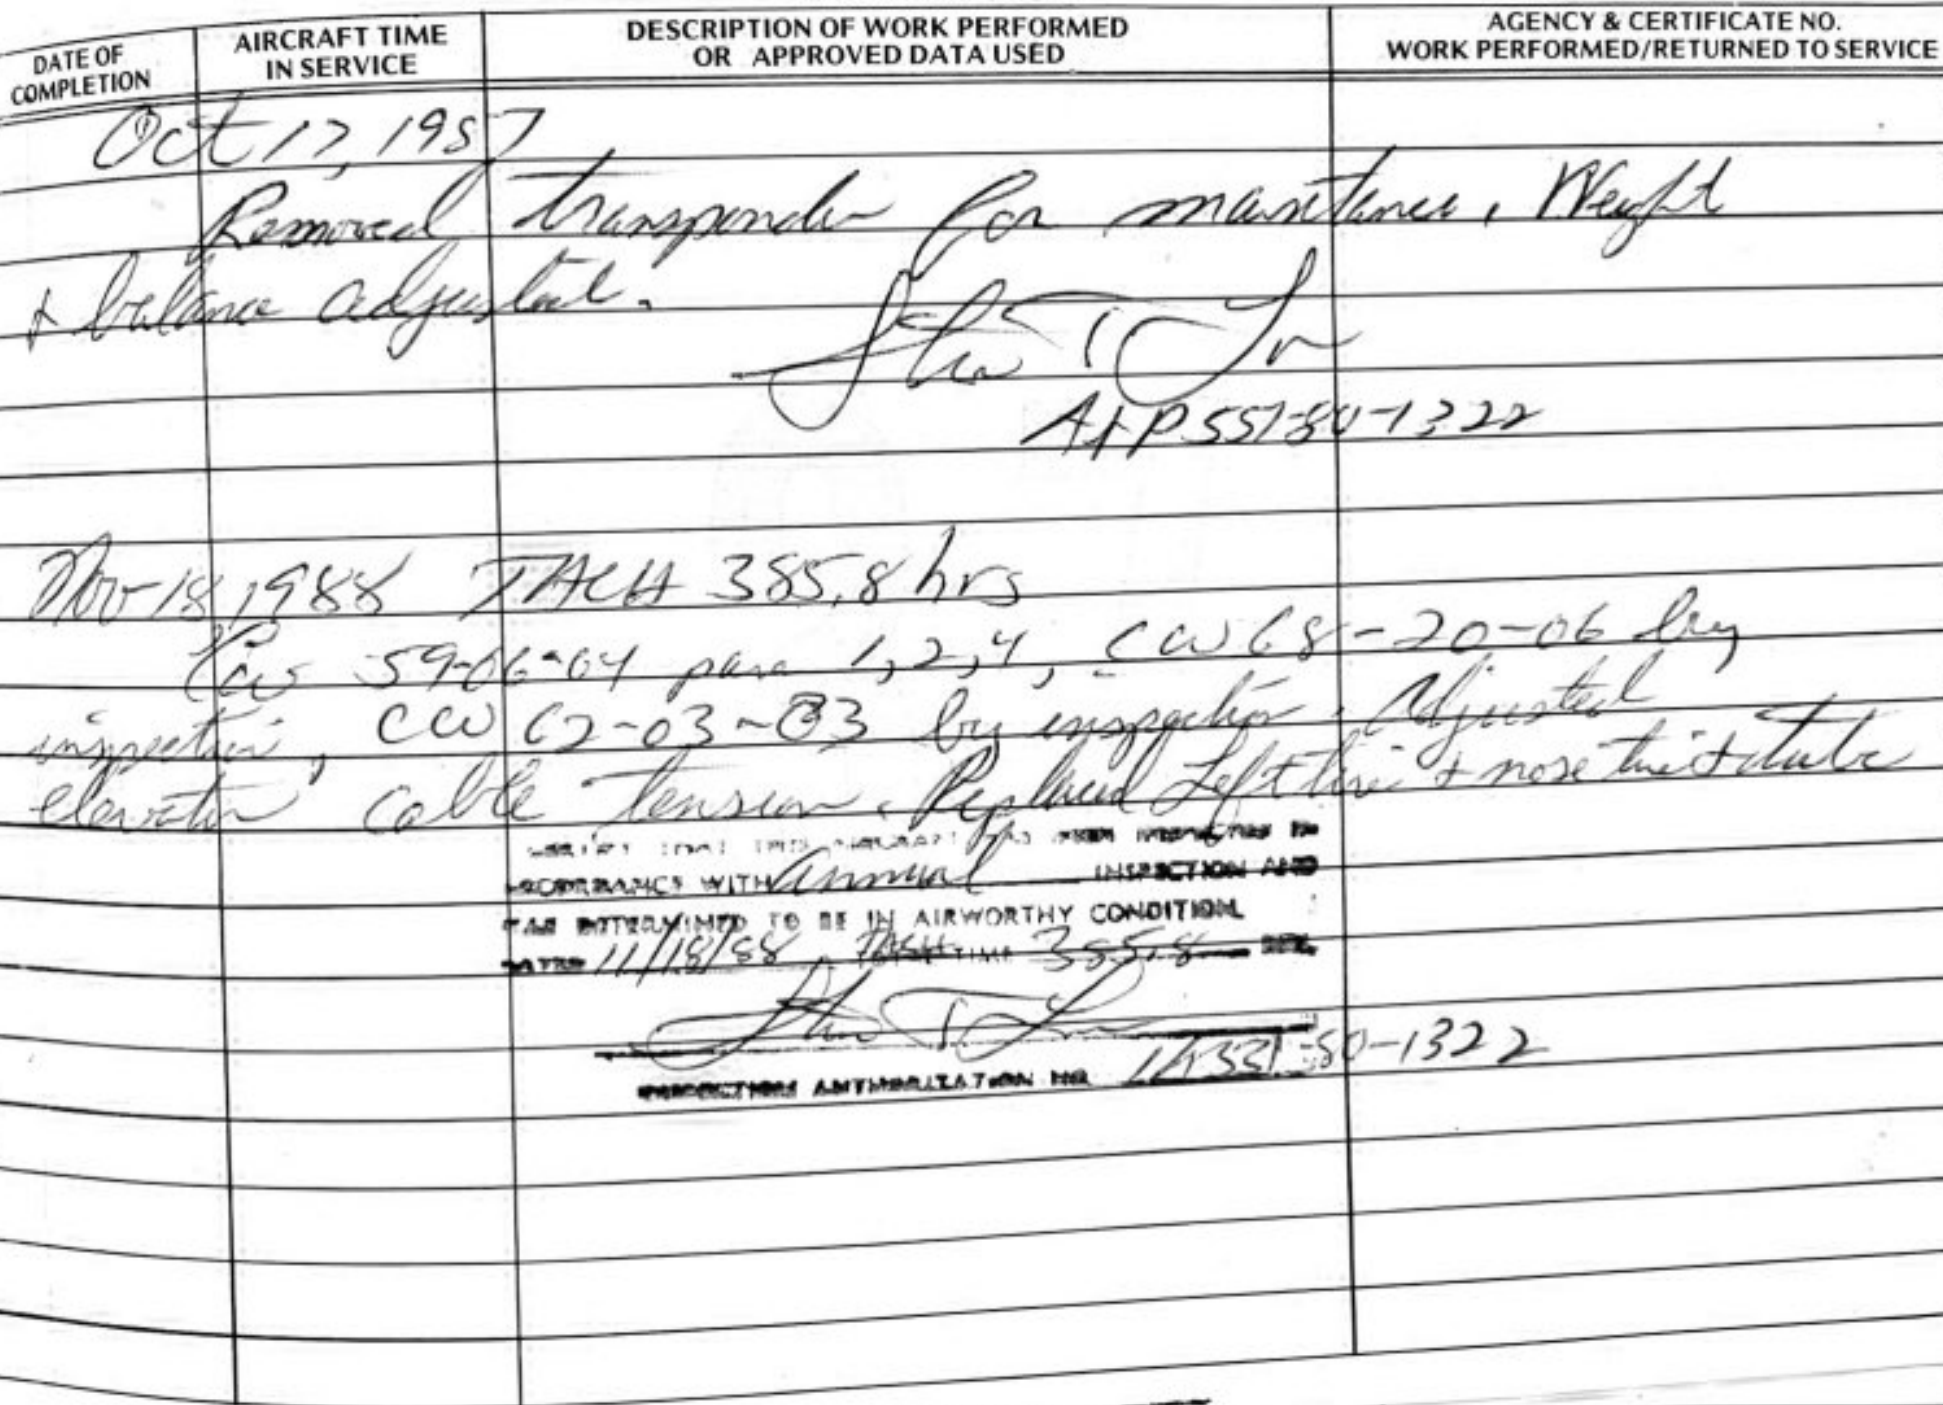 DATE OF COMPLETION
AIRCRAFT TIME IN SERVICE
DESCRIPTION OF WORK PERFORMED OR APPROVED DATA USED
AGENCY & CERTIFICATE NO. WORK PERFORMED/RETURNED TO SERVICE
Oct 17, 1987
Removed transponder for maintance, Weight
& balance adjusted.
A&P 557-80-1322
Nov 18, 1988 TACH 385.8 hrs
CW 59-06-04 para 1, 2, 4, CW 68-20-06 by
inspection, CW 62-03-03 by inspection. Adjusted
elevator cable tension. Replaced Left tire & nose tire & tube
CERTIFY THAT THIS AIRCRAFT HAS BEEN INSPECTED IN
ACCORDANCE WITH annual INSPECTION AND
WAS DETERMINED TO BE IN AIRWORTHY CONDITION.
DATED 11/18/88 TACH TIME 385.8 HRS.
INSPECTION AUTHORIZATION NO. 557-80-1322